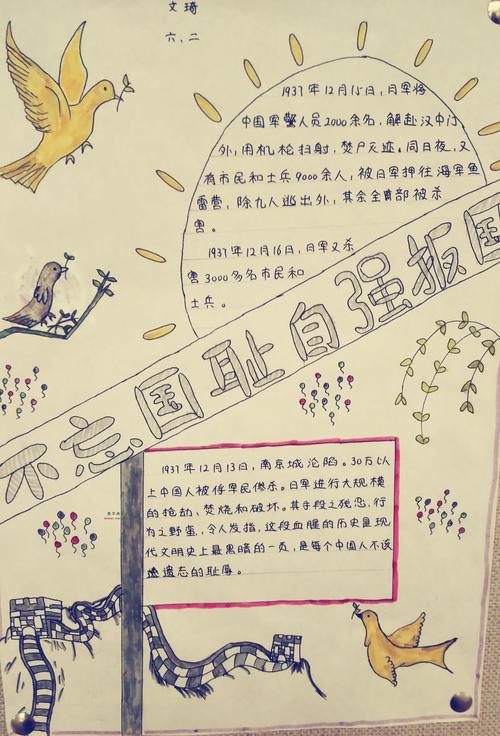 文琦
六.二
1937年12月15日,日军将
中国军警人员2000余名,解赴汉中门
外,用机枪扫射,焚尸灭迹。同日夜,又
有市民和士兵9000余人,被日军押往海军鱼
雷营,除九人逃出外,其余全部被杀
害。
1937年12月16日,日军又杀
害3000多名市民和
士兵。
不忘国耻自强振国
1937年12月13日,南京城沦陷。30万以
上中国人被侵军民惨杀。日军进行大规模
的抢劫、焚烧和破坏。其手段之残忍,行
为之野蛮,令人发指,这段血腥的历史是现
代文明史上最黑暗的一页,是每个中国人不该
遗忘的耻辱。